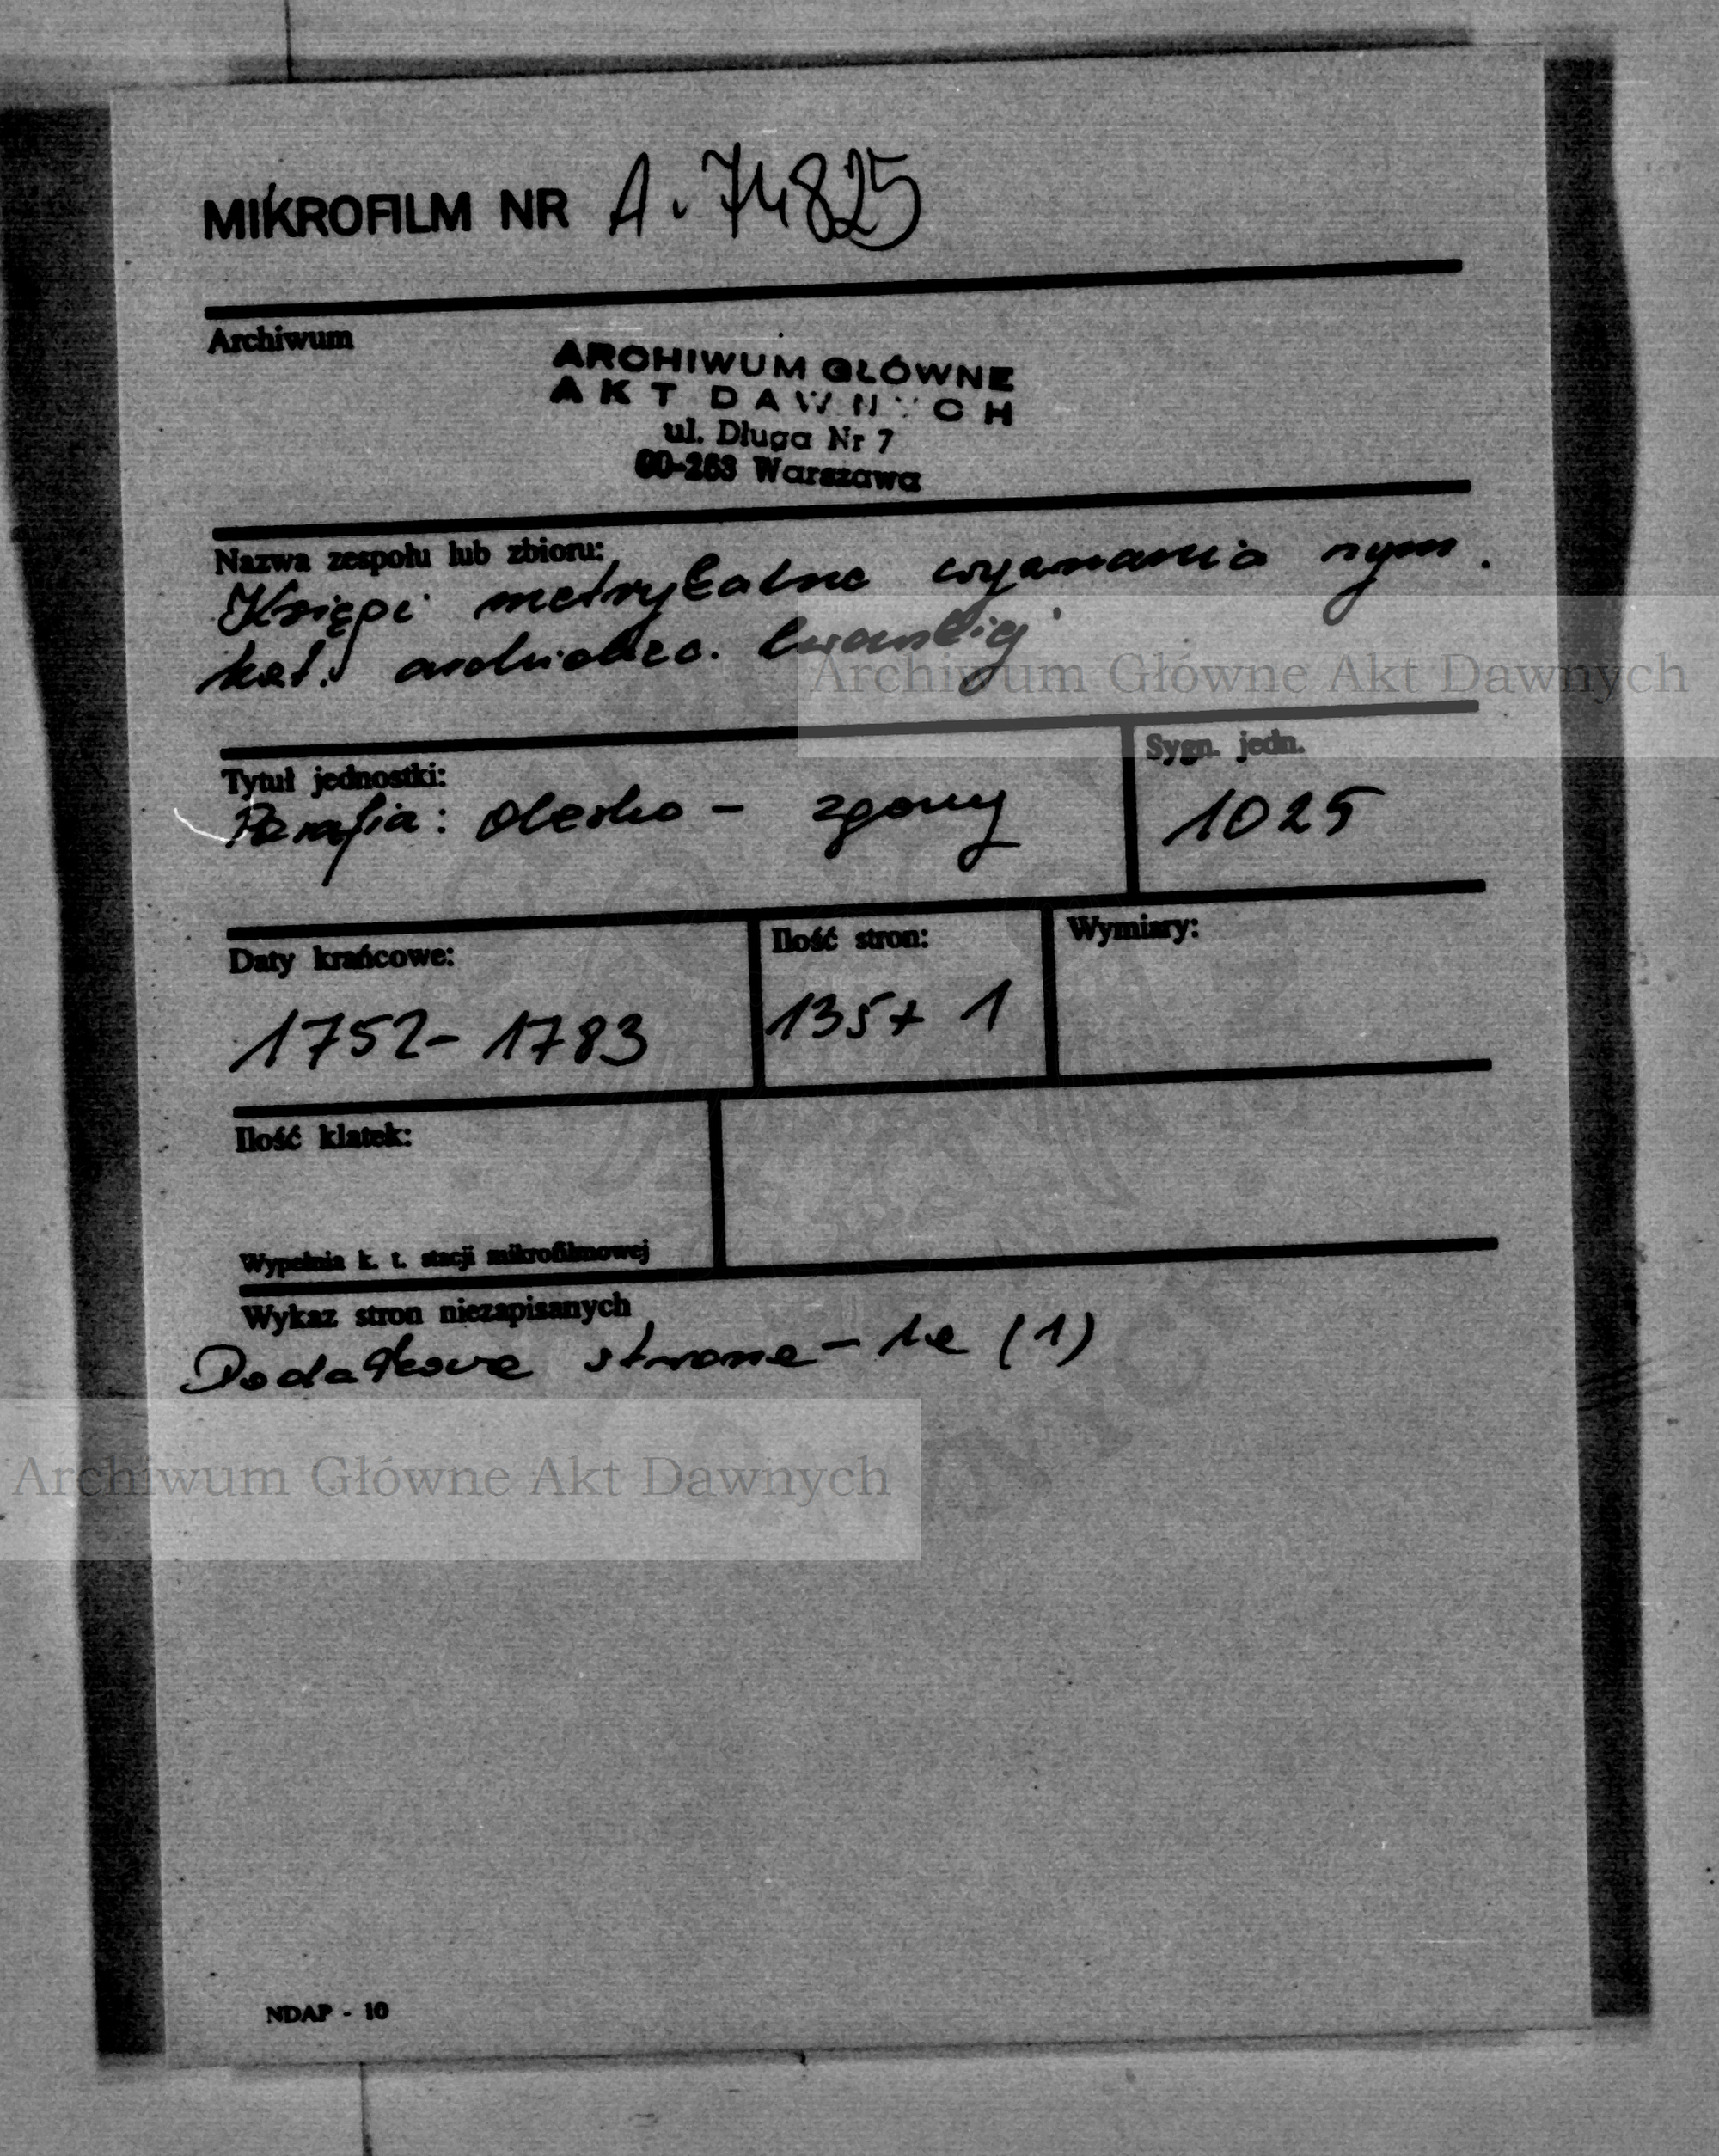 MIKROFILM NR A. 74825
Archiwum
ARCHIWUM GŁÓWNE
AKT DAWNYCH
ul. Długa Nr 7
00-263 Warszawa
Nazwa zespołu lub zbioru:
Księgi metrykalne wyznania rzym.
kat. archidiec. lwowskiej
Archiwum Główne Akt Dawnych
Tytuł jednostki:
Parafia: Olesko - zgony
Sygn. jedn.
1025
Daty krańcowe:
1752- 1783
Ilość stron:
135+ 1
Wymiary:
Ilość klatek:
Wypełnia k. t. stacji mikrofilmowej
Wykaz stron niezapisanych
Dodatkowe strona - 1a (1)
Archiwum Główne Akt Dawnych
NDAP - 10